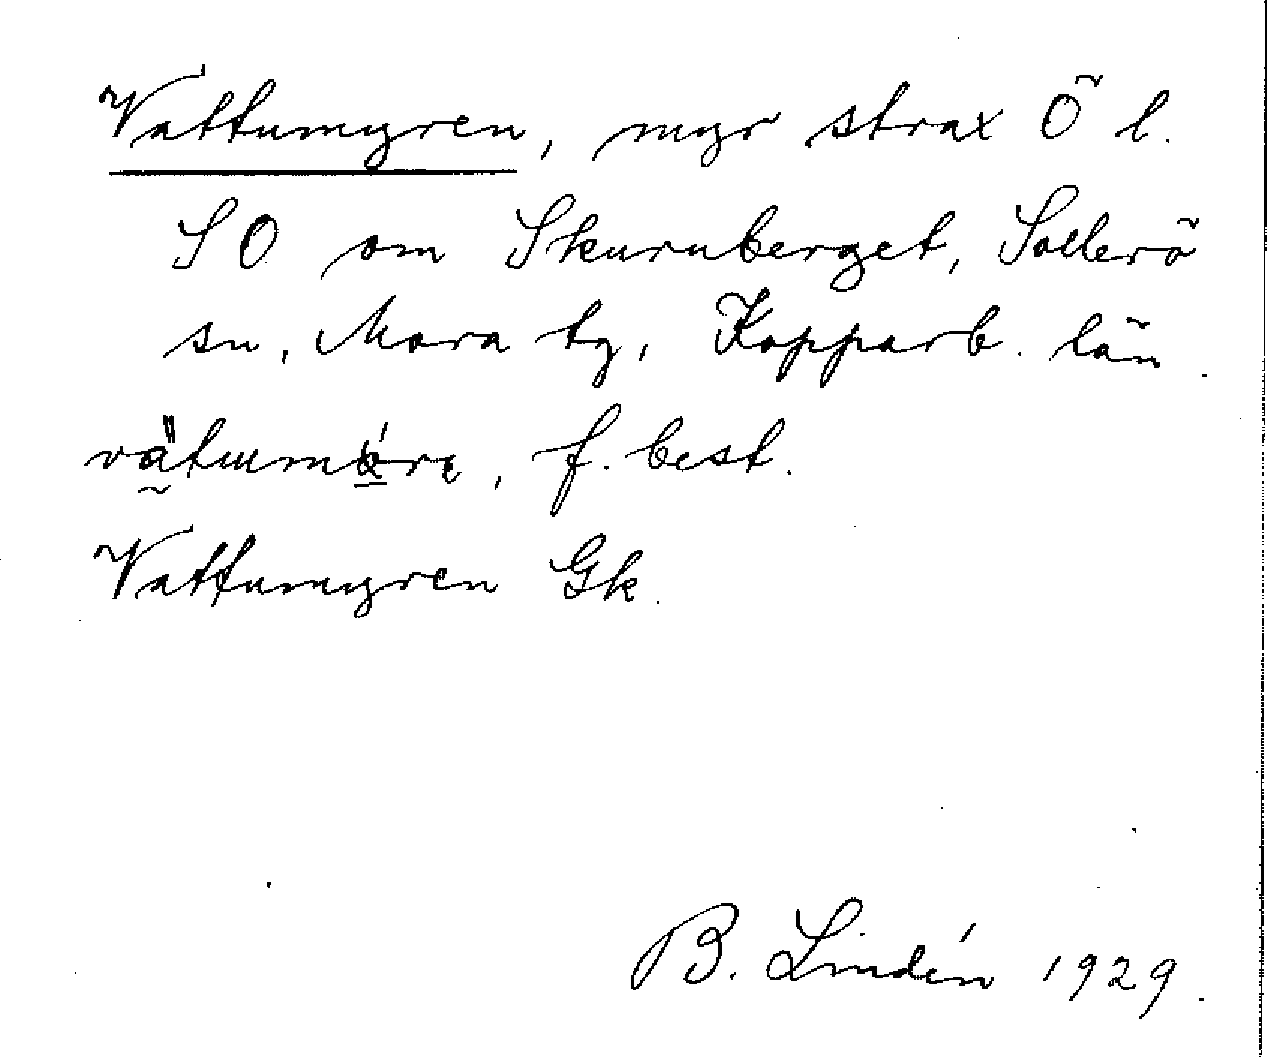 Vattumyren, myr strax Ö l.
SO om Skurnberget, Sollerö
sn, Mora tg, Kopparb. län.
f. best.
Vattumyren Gk.
B. Lindén 1929.